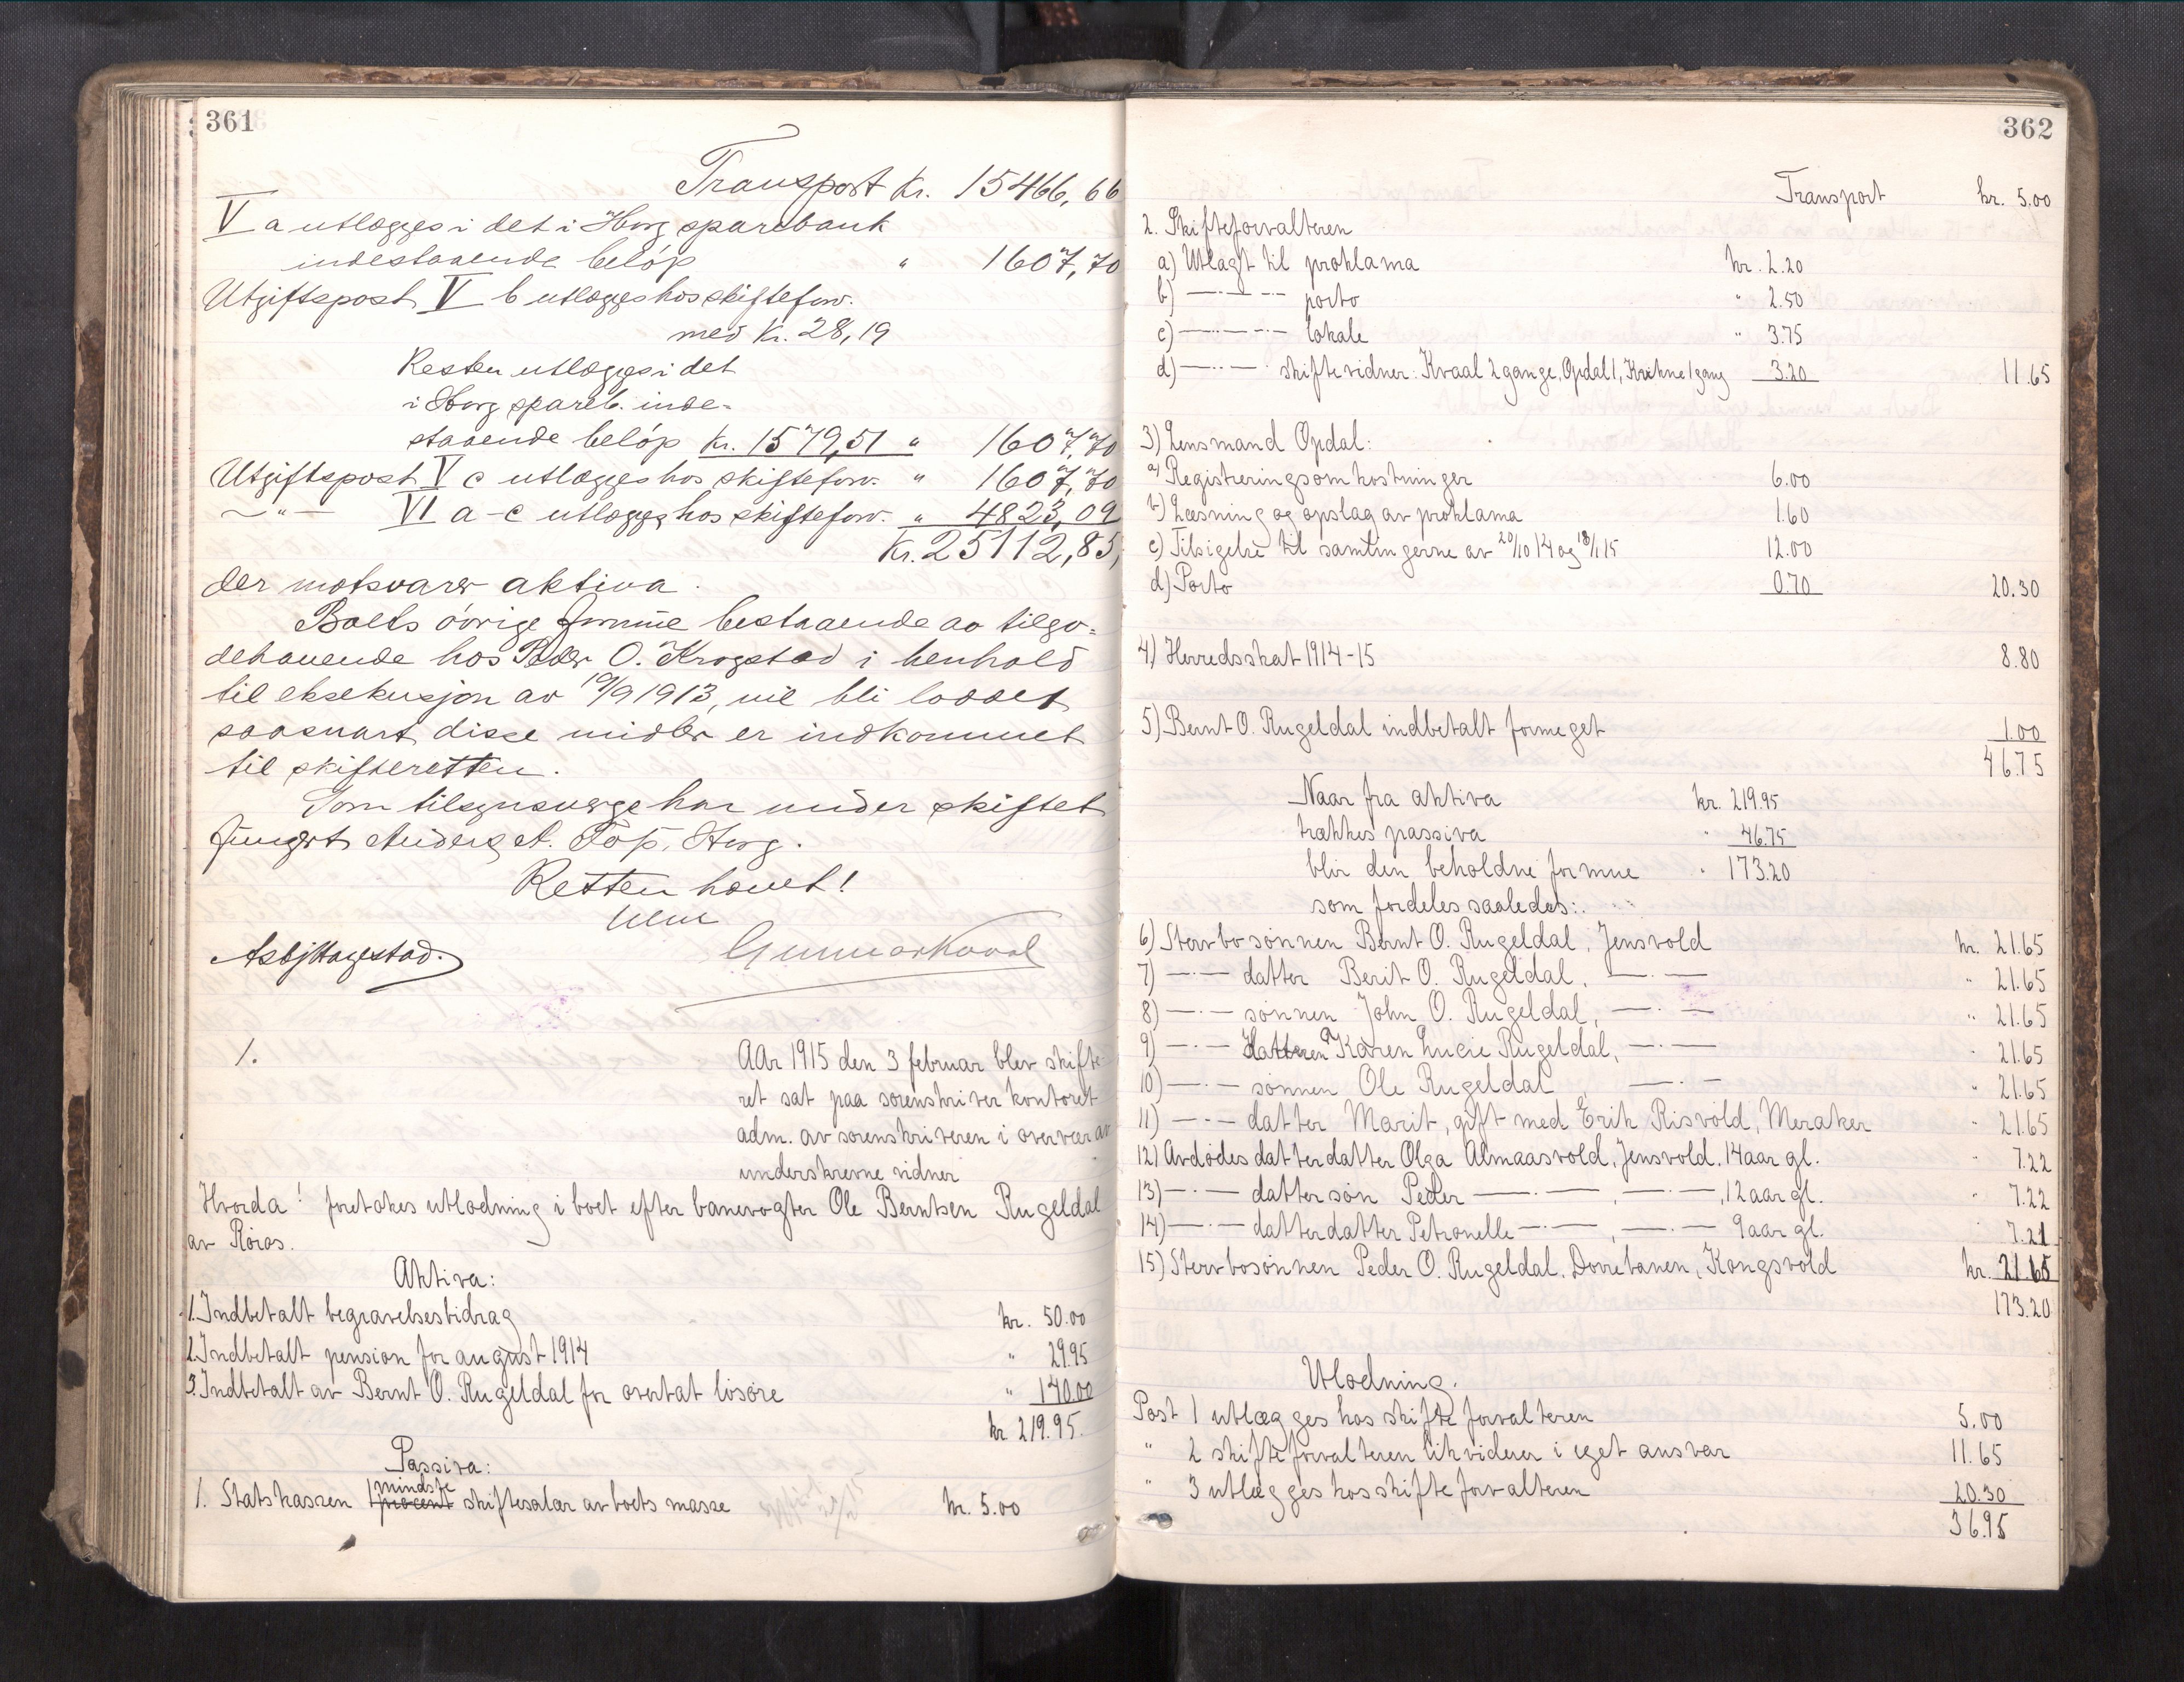 361
Transport kr. 15466,66
V a utlægges i det i Horg sparebank
indestaaende beløp " 1607,70
Utgiftspost V b utlægges hos skifteforv.
med kr. 28,19
Resten utlægges i det
i Horg spareb. inde-
staaende beløp kr. 1579,51 " 1607,70
Utgiftspost V c utlægges hos skifteforv. " 1607,70
—"— VI a-c utlægges hos skifteforv. " 4823,09
kr. 25112,85,
der motsvarer aktiva.
Boets øvrige formue bestaaende av tilgo-
dehavende hos Peder O. Krogstad i henhold
til eksekusjon av 19/9 1913, vil bli loddet
saasnart disse midler er indkommet
til skifteretten.
Som tilsynsverge har under skiftet
fungert Anders A. Løp, Horg.
Retten hævet!
Asbj Hagestad. Gunnar Kvaal
1. AAr 1915 den 3 februar blev skifte-
ret sat paa sorenskriverkontoret
adm. av sorenskriveren i overvær av
underskrevne vidner
Hvorda! foretokes utlodning i boet efter banevogter Ole Berntsen Rugeldal
av Røros.
Aktiva:
1. Indbetalt begravelsesbidrag kr. 50.00
2. Indbetalt pension for august 1914 " 29.95
3. Indbetalt av Bernt O. Rugeldal for overtat løsøre " 140.00
kr 219.95.
Passiva:
1. Statskassen 1 procent mindste skiftesalær av boets masse kr. 5.00
362
Transport kr. 5.00
2. Skifteforvalteren
a) Utlagt til proklama kr. 2.20
b) —·—·— porto " 2.50
c) —·—·— lokale " 3.75
d) —·—·— skiftevidner: Kvaal 2 gange, Opdal 1, Krikne 1 gang 3.20 11.65
3) Lensmand Opdal:
a) Registreringsomkostninger 6.00
b) Læsning og opslag av proklama 1.60
c) Tilsigelse til samlingerne av 20/10 14 og 18/1 15 12.00
d) Porto 0.70 20.30
4) Herredsskat 1914-15 8.80
5) Bernt O. Rugeldal indbetalt formeget 1.00
46.75
Naar fra aktiva kr. 219.95
trækkes passiva " 46.75
blir den beholdne formue " 173.20
som fordeles saaledes:
6) Stervbosønnen Bernt O. Rugeldal, Jensvold kr. 21.65
7) —·— datter Berit O. Rugeldal, —·— " 21.65
8) —·— sønnen John O. Rugeldal, —·— " 21.65
9) —·— datteren Karen Lucie Rugeldal, —·— " 21.65
10) —·— sønnen Ole Rugeldal —·— " 21.65
11) —·— datter Marit, gift med Erik Risvold, Meraker " 21.65
12) Avdødes datterdatter Olga Almaasvold, Jensvold, 14 aar gl. " 7.22
13) —·— dattersøn Peder —·—, —·—, 12 aar gl. " 7.22
14) —·— datterdatter Petronelle —·—, —·— 9 aar gl. 7.21
15) Stervbosønnen Peder O. Rugeldal, Dovrebanen, Kongsvold kr. 21.65
173.20
Utlodning.
Post 1 utlægges hos skifteforvalteren 5.00
" 2 skifteforvalteren likviderer i eget ansvar 11.65
" 3 utlægges hos skifteforvalteren 20.30
36.95